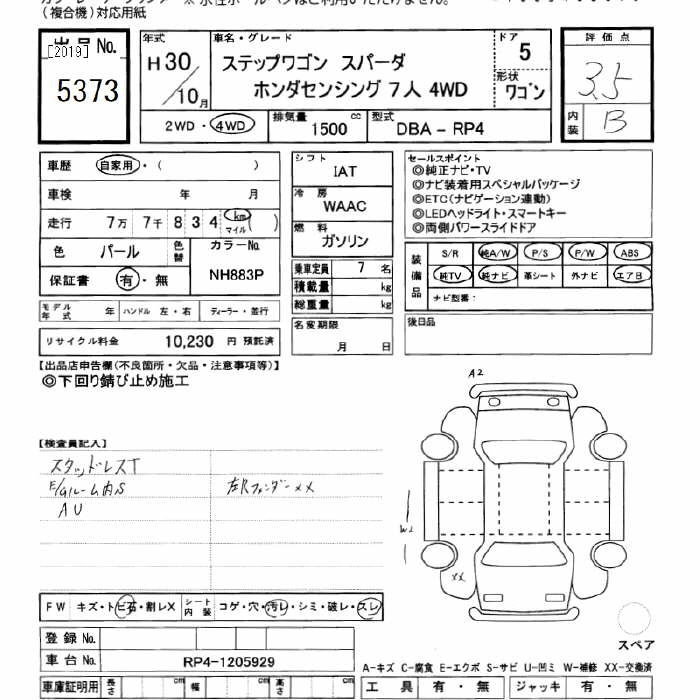 (複合機)対応用紙
出品No.
[2019]
5373
年式
H30/10月
車名・グレード
ステップワゴン スパーダ
ホンダセンシング 7人 4WD
ドア
5
形状
ワゴン
評価点
3.5
内装
B
2WD・4WD
排気量
1500 cc
型式
DBA - RP4
車歴 自家用・( )
車検 年 月
走行 7万 7千 8 3 4 km マイル ( )
色 パール 色替 カラーNo.
NH883P
保証書 有・無
モデル年式 年 ハンドル 左・右 ディーラー・並行
リサイクル料金 10,230 円 預託済
シフト
IAT
冷房
WAAC
燃料
ガソリン
乗車定員 7 名
積載量 kg
総重量 kg
名変期限
月 日
セールスポイント
◎純正ナビ・TV
◎ナビ装着用スペシャルパッケージ
◎ETC(ナビゲーション連動)
◎LEDヘッドライト・スマートキー
◎両側パワースライドドア
装備品
S/R 純A/W P/S P/W ABS
純TV 純ナビ 革シート 外ナビ エアB
ナビ型番:
後日品
【出品店申告欄(不良箇所・欠品・注意事項等)】
◎下回り錆び止め施工
【検査員記入】
スタッドレスT
E/Gルーム内S
AU
左Rフェンダーxx
A2
W2
xx
FW キズ・トビ石・割レX シート内装 コゲ・穴・汚レ・シミ・破レ・スレ
登録No.
車台No. RP4-1205929
車庫証明用 長さ cm 幅 cm 高さ cm
スペア
A-キズ C-腐食 E-エクボ S-サビ U-凹ミ W-補修 XX-交換済
工具 有・無 ジャッキ 有・無